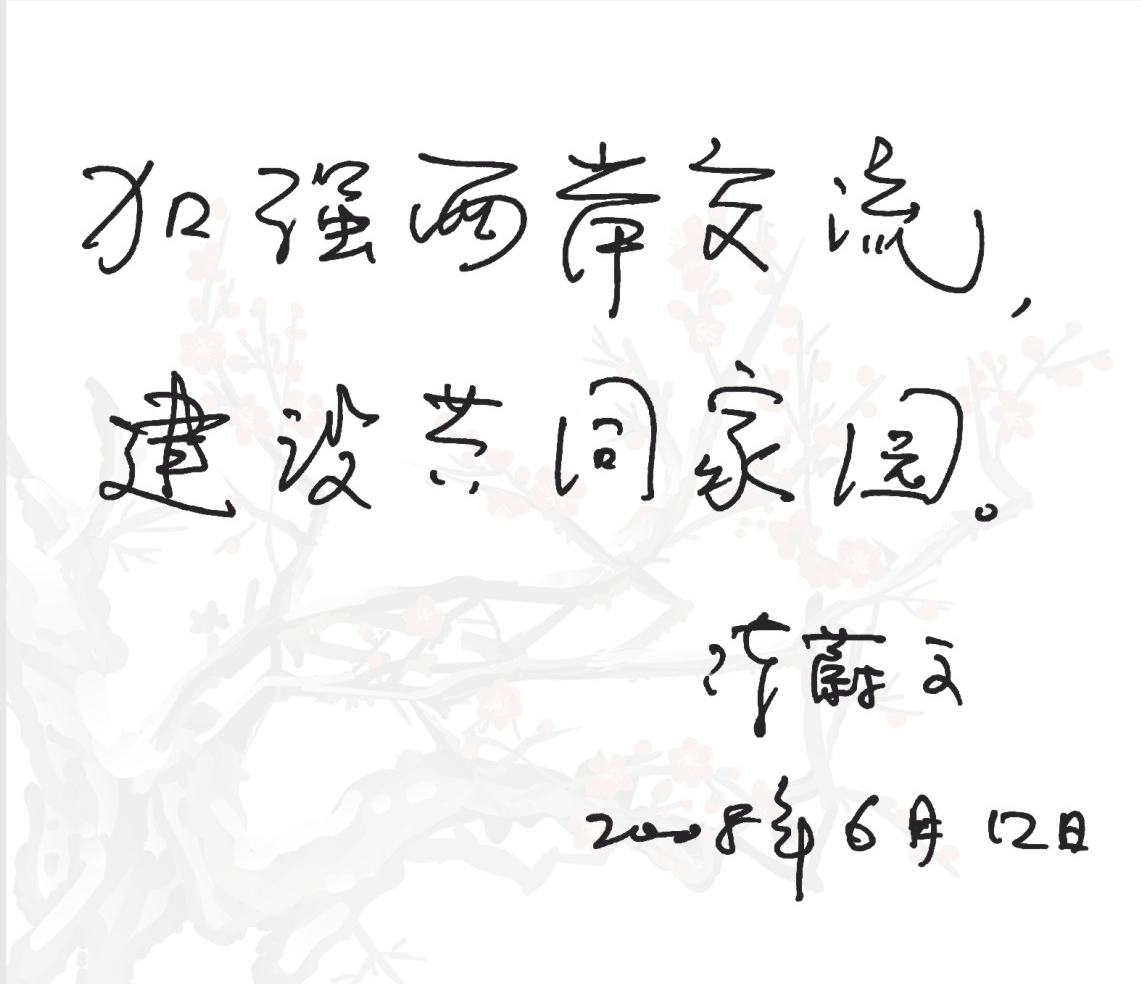 加强两岸交流，
建设共同家园。
蔚文
2008年6月12日